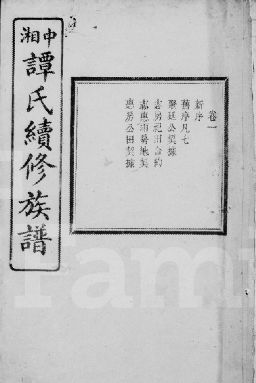 中湘
譚氏續修族譜
卷一
新序
舊序凡七
聚廷公契據
志房祀田合約
志惠兩房地契
惠房公田契據